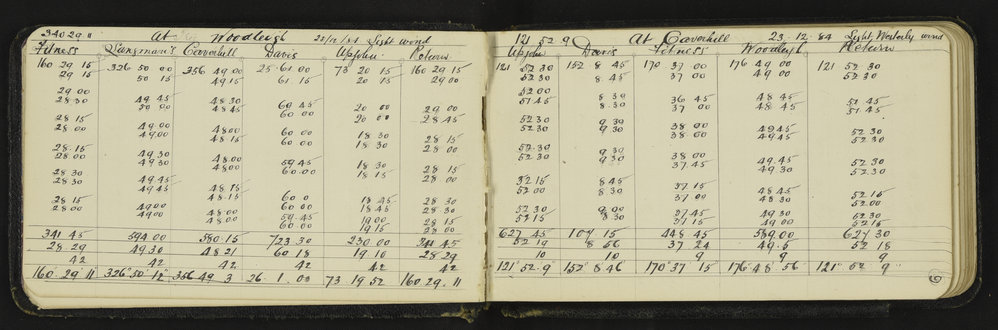 340 29 11 At Woodleigh 21/12/84 Light wind
Fitness Caverhill Davis Upjohn Return
160 29 15 326 50 00 356 49 00 25 61 00 73 20 15 160 29 15
29 15 50 15 49 15 61 15 20 15 29 00
29 00
28 30 49 45 48 30 60 45 20 00 29 00
50 00 48 45 20 00 28 45
28 15
28 00 49 00 48 00 60 00 18 30 28 15
49 00 48 15 60 00 18 30 28 00
28 15
28 00 49 30 48 00 59 45 18 30 28 15
49 30 48 00 60 00 18 15 28 00
28 30
28 30 49 45 48 15 60 0 18 45 28 30
49 45 48 15 60 00 18 45 28 30
28 15
28 00 49 00 48 00 59 45 19 00 28 15
49 00 48 00 60 00 19 15 28 00
341 45 594 00 580 15 723 30 230 00 341 45
28 29 49 30 48 21 60 18 19 10 28 29
42 42 42 42 42 42
160 29 11 326 50 12 356 49 3 26 1 00 73 19 52 160 29 11
121 52 9 At Caverhill 23.12.84 Light, Westerly wind
Upjohn Davis Fitness Woodleigh Return
121 52 30 152 8 45 170 37 00 176 49 00 121 52 30
52 30 8 45 37 00 49 00 52 30
52 00
51 45 8 30 36 45 48 45 51 45
8 30 37 00 48 45 51 45
52 30
52 30 9 30 38 00 49 45 52 30
9 30 38 00 49 45 52 30
52 30
52 30 9 30 38 00 49 45 52 30
9 30 37 45 49 30 52 30
52 15
52 00 8 45 37 15 48 45 52 15
8 30 37 00 48 30 52 00
52 30
52 15 9 00 37 45 49 30 52 30
8 30 37 15 49 00 52 15
627 45 107 15 448 45 589 00 627 30
52 19 8 56 37 24 49 5 52 18
10 10 9 9 9
121 52 9 152 8 46 170 37 15 176 48 56 121 52 9